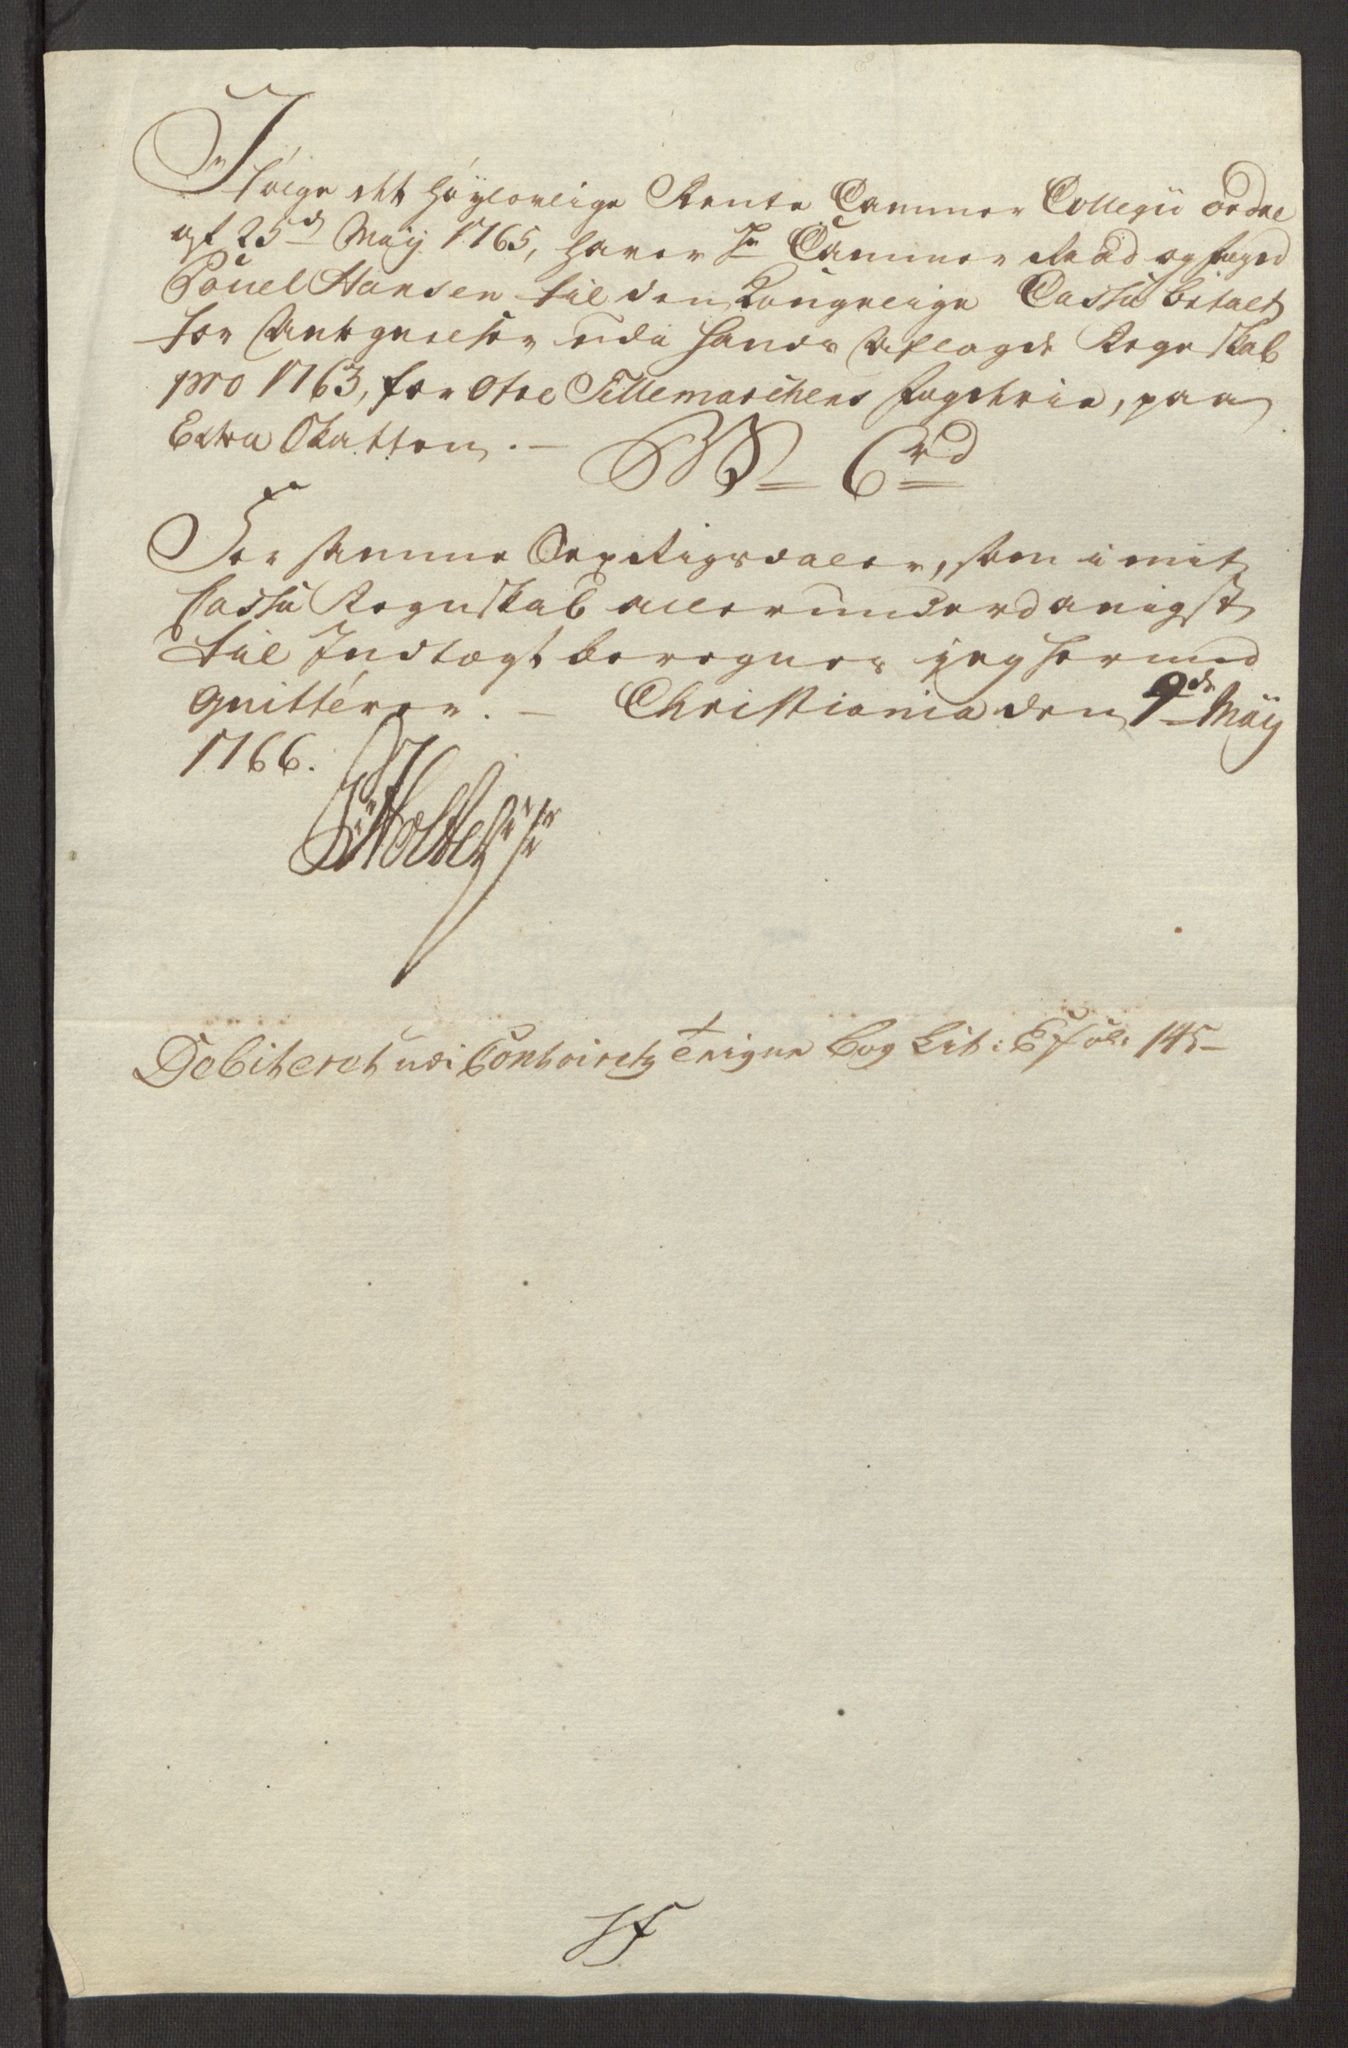 I følge det høylovlige Rente Cammer Collegii ordre
af 25d May 1765, haver Hr Cammer Raad og foged
Pouel Hansen til den Kongelige Cassa betalt
for Antegnelser udi hands aflagde Regnskab
pro 1763, for Øvre Tillemarchens fogderie, paa
Extra Skatten. – 6rd
For samme Sex Rigsdaler, som i mit
Cassa Regnskab allerunderdanigst
til Indtægt beregnes jeg hermed
quitterer. – Christiania den 9de Maÿ
1766.
Debiteret udi Contoiretz Bog Lit: E fol: 145 –